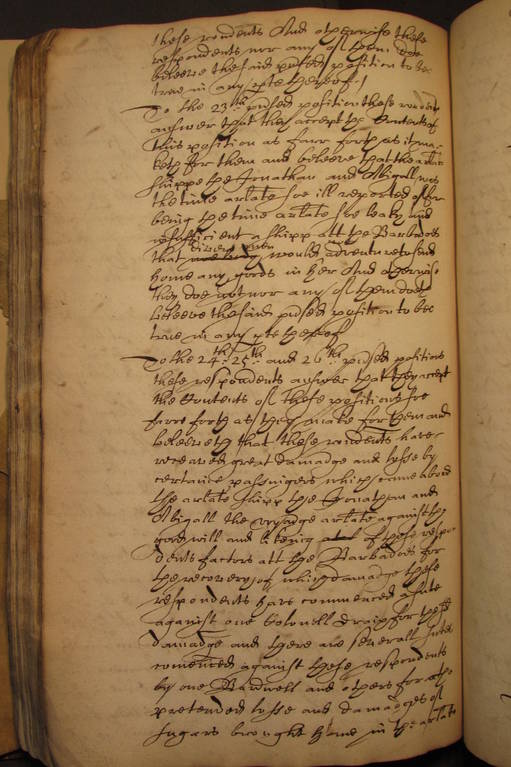 these rondents And otherwise these
respondents nor any of them doe
beleeve the said pnsed position to bee
true in any pte thereof /
To the 23th pnsed position these rondents
answer that they accept the Contents of
this position as farr forth as it ma=
keth for them and beleeve that the arlate
shippe the Jonathan and Abigall was
the time arlate soe ill reported of for
being the time arlate soe leaky and
insufficient a shipp att the Barbados
that divers would adventure to send
home any goods in her And otherwise
they doe not nor any of them doth
beleeve the said pnsed position to bee
true in any pte thereof
To the 24th 25th and 26th pnsed positions
these respondents answer that they accept
the Contents of these positions soe
farre forth as they make for them and
beleeveth that these rondents have
received great damadge and losse by
certaine passingers which came aboard
the arlate shipp the Jonathan and
Abigall the voyadge arlate against the
good will and likeing of these respon
dents factors att the Barbadoes for
the recovery of which damadge these
respondents have commenced a suite
against one Colonell Drax for these
damadge and there are severall suites
comenced against these respondents
by one Bardwell and others for
pretended losse and damadges of
sugars brought home in the arlate